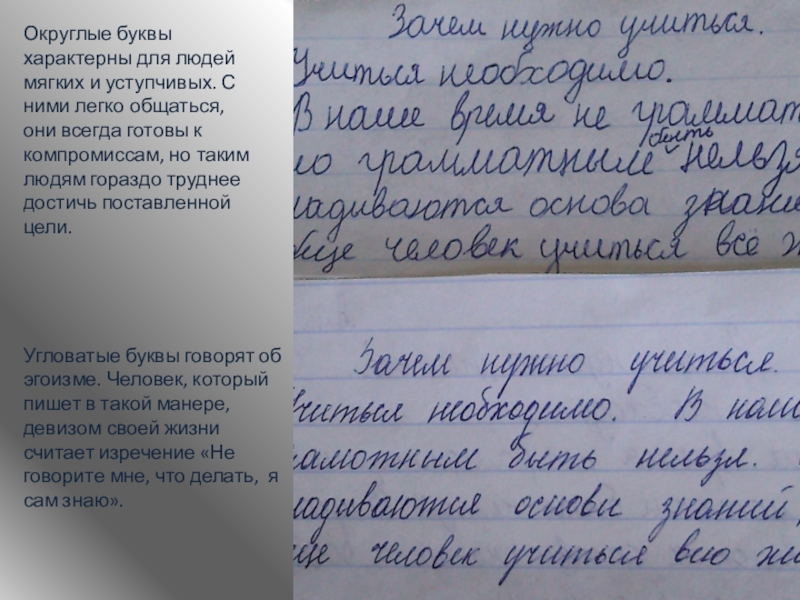 Округлые буквы
характерны для людей
мягких и уступчивых. С
ними легко общаться,
они всегда готовы к
компромиссам, но таким
людям гораздо труднее
достичь поставленной
цели.
Угловатые буквы говорят об
эгоизме. Человек, который
пишет в такой манере,
девизом своей жизни
считает изречение «Не
говорите мне, что делать, я
сам знаю».
Зачем нужно учиться.
Учиться необходимо.
В наше время не граммат
но грамматным быть нельзя
ладиваются основа знани
бще человек учиться всё ж
Зачем нужно учиться.
Учиться необходимо. В наше
рамотным быть нельзя.
ладиваются основи знаний,
ще человек учиться всю жи